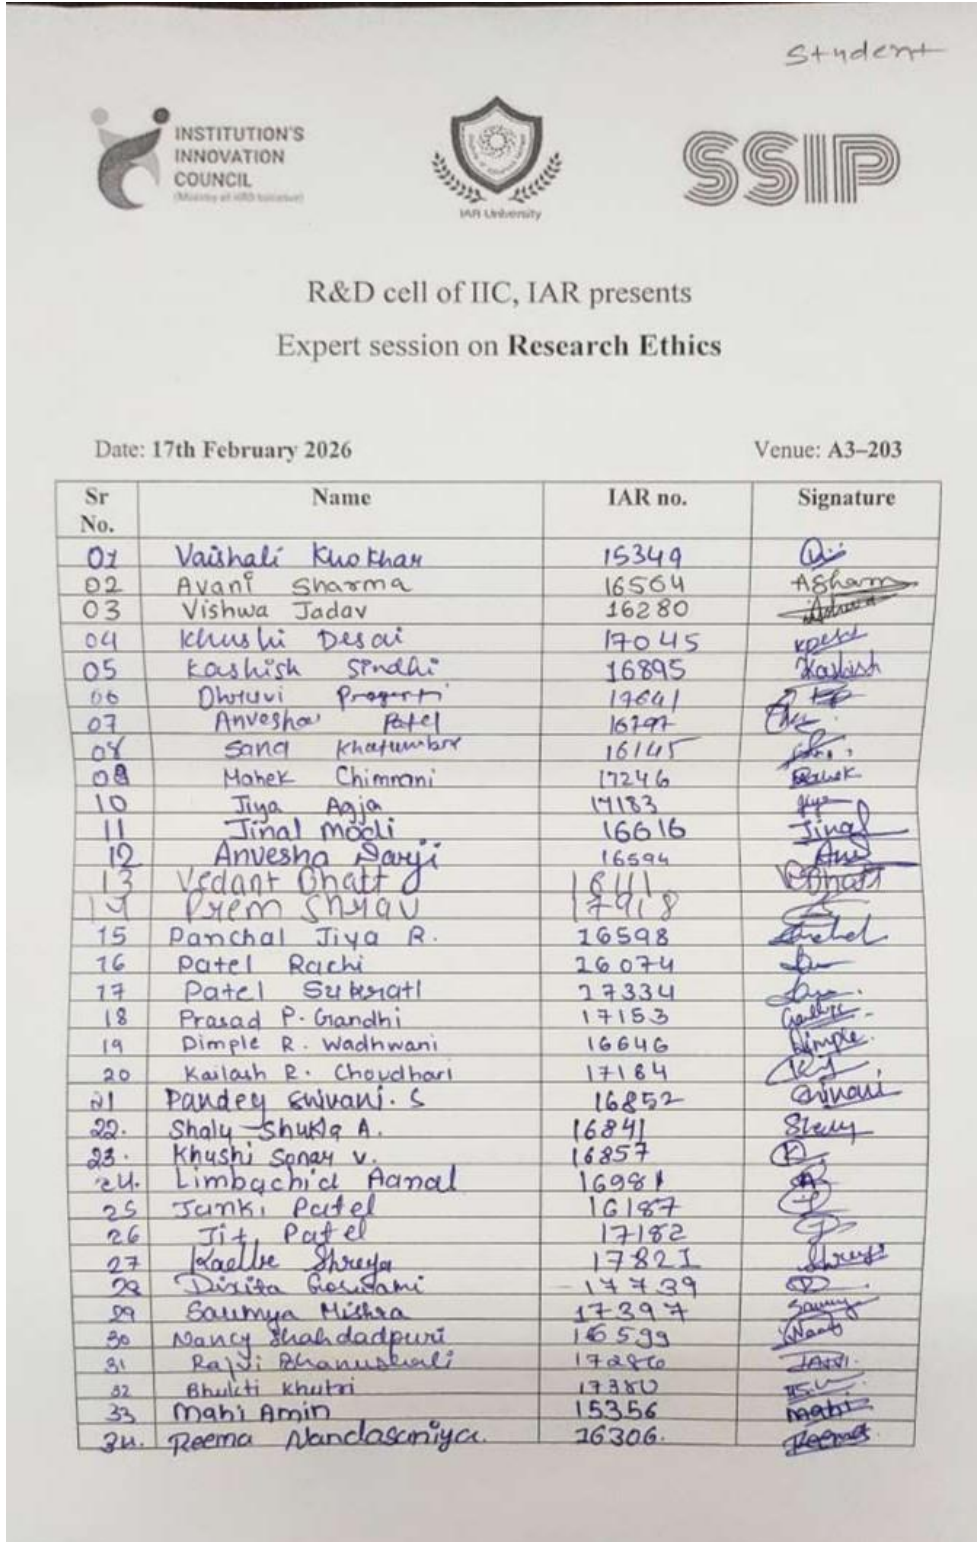 Student
INSTITUTION'S
INNOVATION
COUNCIL
(Ministry of HRD Initiative)
IAR University
SSIP
R&D cell of IIC, IAR presents
Expert session on Research Ethics
Date: 17th February 2026 Venue: A3–203
Sr No. Name IAR no. Signature
01 Vaishali Khokhar 15349
02 Avani Sharma 16564 ASharma
03 Vishwa Jadav 16280
04 Khushi Desai 17045
05 Kashish Sindhi 16895 Kashish
06 Dhruvi 17641
07 Anvesha Patel
08 Sana 16145
09 Mahek Chimnani 17246
10 Jiya 17183 Jiya
11 Jinal Modi 16616 Jinal
12 Anvesha Darji 16594
13 Vedant Bhatt 1641 VBhatt
14 Prem 17918
15 Panchal Jiya R. 16598
16 Patel Rachi 16074
17 Patel 17334
18 Prasad P. Gandhi 17153
19 Dimple R. Wadhwani 16646 Dimple.
20 Kailash R. Choudhari 17184
21 Pandey Shivani. S 16852 Shivani
22. Shaly Shukla A. 16841
23. Khushi Sonar V. 16857
24. Limbachia Aanal 16981
25 Janki Patel 16187
26 Jit Patel 17182
27 Shreya 17821
28 Dixita Goswami 17739
29 Saumya Mishra 17397
30 Nancy Shahdadpuri 16599
31 Rajvi Bhanushali
32 Bhukti Khatri 17380
33 Mahi Amin 15356 Mahi
34. Reema Nandasaniya. 16306. Reema